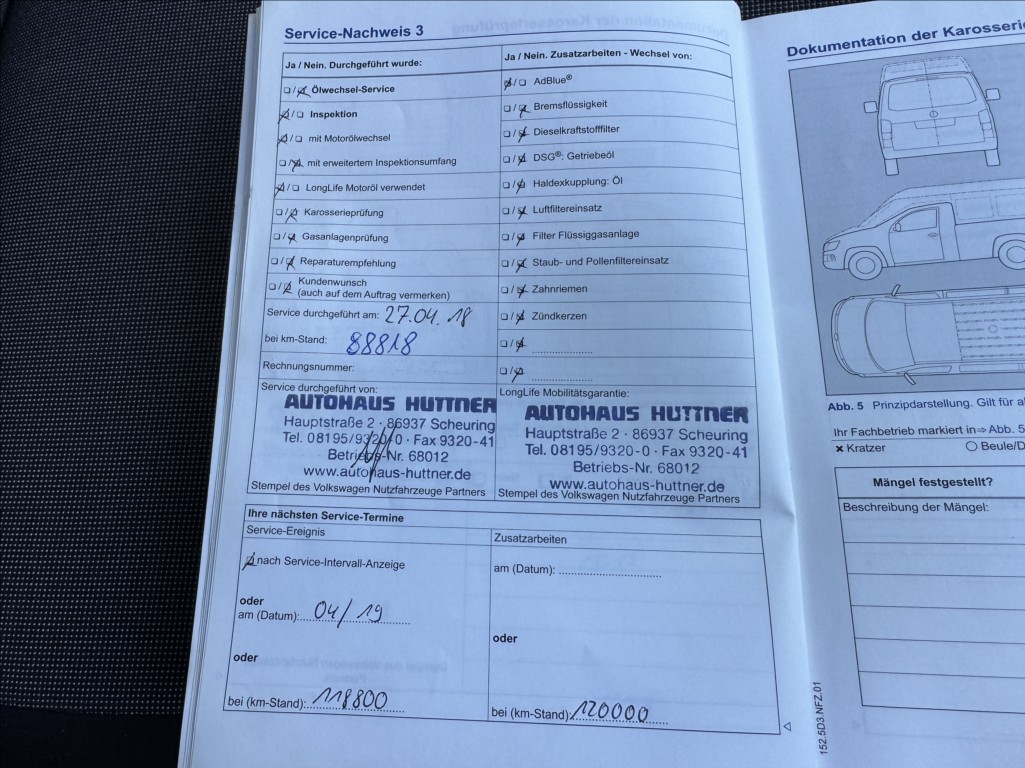 Service-Nachweis 3
Ja / Nein. Durchgeführt wurde:
☐/☒ Ölwechsel-Service
☒/☐ Inspektion
☒/☐ mit Motorölwechsel
☐/☒ mit erweitertem Inspektionsumfang
☒/☐ LongLife Motoröl verwendet
☐/☒ Karosserieprüfung
☐/☒ Gasanlagenprüfung
☐/☒ Reparaturempfehlung
☐/☒ Kundenwunsch
(auch auf dem Auftrag vermerken)
Service durchgeführt am: 27.04.18
bei km-Stand: 88818
Rechnungsnummer:
Service durchgeführt von:
AUTOHAUS HUTTNER
Hauptstraße 2 · 86937 Scheuring
Tel. 08195/9320-0 · Fax 9320-41
Betriebs-Nr. 68012
www.autohaus-huttner.de
Stempel des Volkswagen Nutzfahrzeuge Partners
Ja / Nein. Zusatzarbeiten - Wechsel von:
☒/☐ AdBlue®
☐/☒ Bremsflüssigkeit
☐/☒ Dieselkraftstofffilter
☐/☒ DSG®: Getriebeöl
☐/☒ Haldexkupplung: Öl
☐/☒ Luftfiltereinsatz
☐/☒ Filter Flüssiggasanlage
☐/☒ Staub- und Pollenfiltereinsatz
☐/☒ Zahnriemen
☐/☒ Zündkerzen
☐/☒ ....................
☐/☒ ....................
LongLife Mobilitätsgarantie:
AUTOHAUS HUTTNER
Hauptstraße 2 · 86937 Scheuring
Tel. 08195/9320-0 · Fax 9320-41
Betriebs-Nr. 68012
www.autohaus-huttner.de
Stempel des Volkswagen Nutzfahrzeuge Partners
Ihre nächsten Service-Termine
Service-Ereignis
☒ nach Service-Intervall-Anzeige
oder
am (Datum): 04/19
oder
bei (km-Stand): 118800
Zusatzarbeiten
am (Datum): ....................
oder
bei (km-Stand): 120000
Dokumentation der Karosserie
Abb. 5 Prinzipdarstellung. Gilt für
Ihr Fachbetrieb markiert in ⇒ Abb. 5
✖ Kratzer
○ Beule/D
Mängel festgestellt?
Beschreibung der Mängel:
152.5D3.NFZ.01